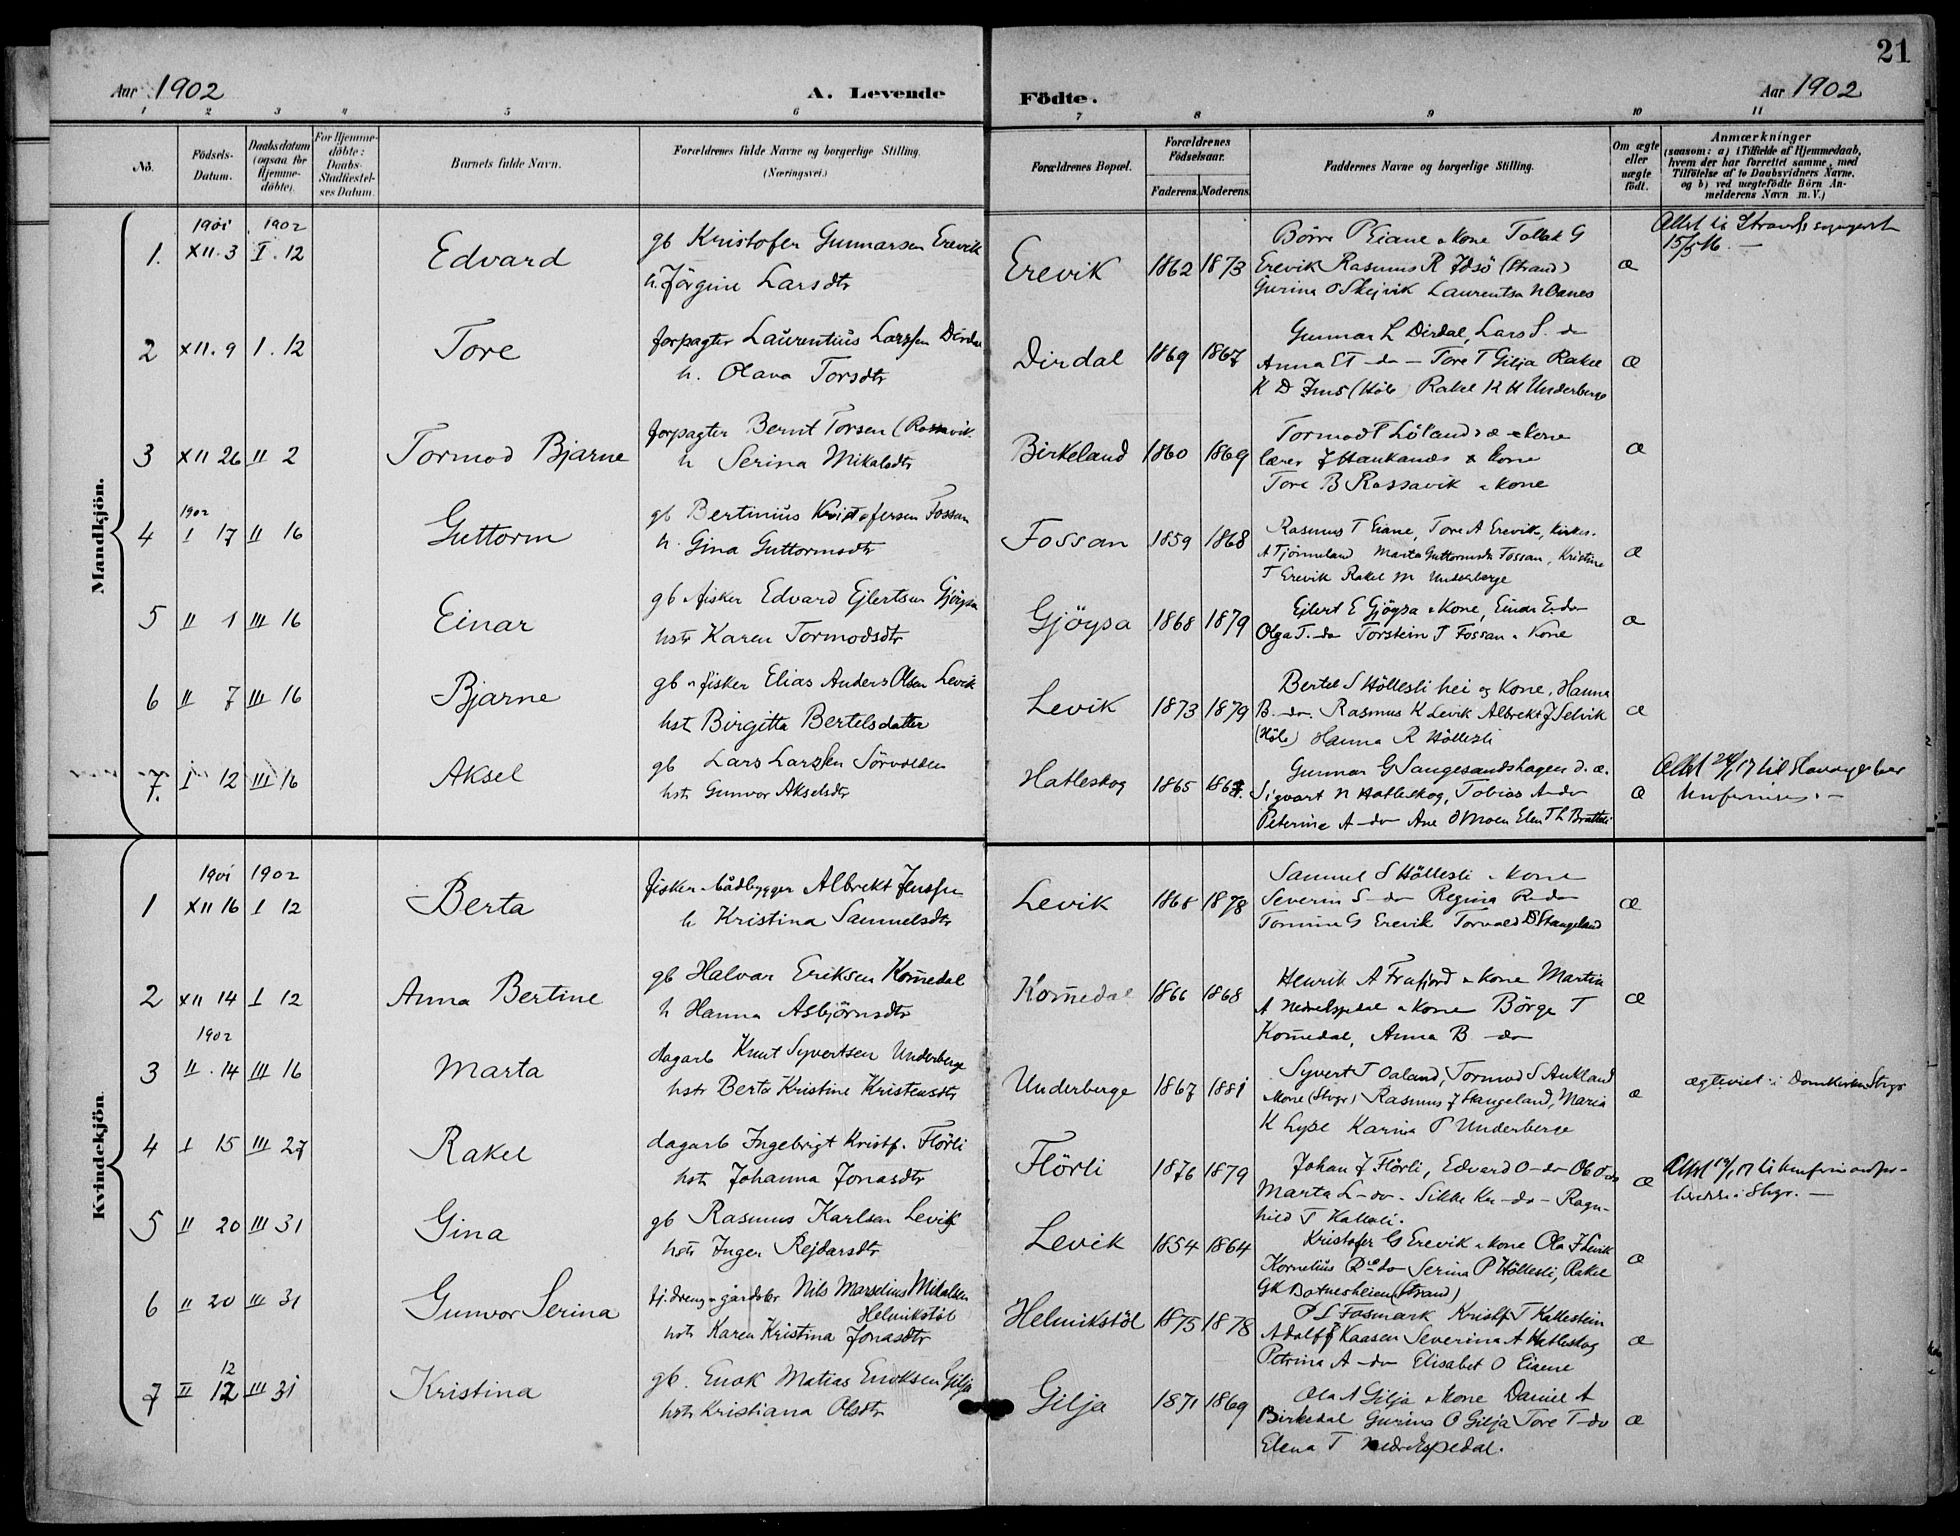 21
Aar 1902 A. Levende Födte. Aar 1902
1 2 3 4 5 6 7 8 9 10 11
No. Födsels-Datum. Daabsdatum (ogsaa for Hjemme-döbte). For Hjemme-döbte: Daabs-Stadfæstel-ses Datum. Barnets fulde Navn. Forældrenes fulde Navne og borgerlige Stilling. (Næringsvei.) Forældrenes Bopæl. Forældrenes Födselsaar. Faderens. Moderens. Faddernes Navne og borgerlige Stilling. Om ægte eller uægte födt. Anmærkninger
(saasom: a) i Tilfælde af Hjemmedaab,
hvem der har forrettet samme, med
Tilföielse af to Daabsvidners Navne,
og b) ved uægtefödte Börn An-
melderens Navn m. V.)
Mandkjön.
1901 1902
1. XII. 3 I. 12 Edvard gb Kristofer Gunnarsen Erevik
h. Jörgine Larsdtr
Erevik 1862 1873 Börre P Eiane & Kone Tollak G
Erevik Rasmus R Idsö (Strand)
Gurina O Skejvik
æ
15/5 16. —
2 XII. 9 I. 12 Tore forpagter Laurentius Larssen Dirdal
h. Olava Torsdtr
Dirdal 1869 1867 Gunnar L Dirdal, Lars S. do
Anna ET do — Tore T Gilja Rakel
K D Ims (Höle) Rakel K H Underberge
æ
3 XII 26 II 2 Tormod Bjarne forpagter Bernt Torsen (Rossavik.
h Serina Mikalsdtr
Birkeland 1860 1869 Tormod T Löland s. æ & Kone
lærer J Haukanæs & Kone
Tore B Rossavik & Kone
æ
1902
4 I 17 II 16 Guttorm gb Bertinius Kristofersen Fossan
h. Gina Guttormsdtr
Fossan 1859 1868 Rasmus T Eiane, Tore A Erevik,
A Tjörmeland Marta Guttormsdtr Fossan, Kristine
T Erevik Rakel M Underberge
æ
5 II 1 III 16 Einar gb & fisker Edvard Ejlertsen Gjöysa
hstr Karen Tormodsdtr
Gjöysa 1868 1879 Ejlert E Gjöysa & Kone, Einar E do
Olga T. do Torstein T Fossan & Kone
æ
6 II 7 III 16 Bjarne gb & fisker Elias Anders Olsen Levik
hst Birgitta Bertelsdatter
Levik 1873 1879 Bertel S Höllesli hei og Kone, Hanna
B. do. Rasmus K Levik Albrekt J Selvik
(Höle) Hanna R Höllesli
æ
7. I 12 III 16 Aksel gb Lars Larssen Sörvolden
hstr Gunvor Akselsdtr
Hatleskog 1865 Gunnar G Sangesandshagen s. æ.
Sigvart N Hatleskog, Tobias A do
Peterine A do Ane O Moen Elen Th Bratteli
æ
Kvindekjön.
1901 1902
1 XII 16 I 12 Berta fisker & bådbygger Albrekt Jenssen
h Kristina Samuelsdtr
Levik 1865 1878 Samuel S Höllesli & Kone
Severin S do Regina R do
Tomine G Erevik Torvald D Stangeland
æ
2 XII 14 I 12 Anna Bertine gb Halvar Eriksen Kom̄edal
h Hanna Asbjörnsdtr
Kom̄edal 1866 1868 Henrik A Frafjord & Kone Martin
A Nedrebspedal & Kone Börge T
Kom̄edal, Anna B do
æ
1902
3 II. 14 III 16 Marta dagarb Knut Syvertsen Underberge
hstr Berta Kristine Kristensdtr
Underberge 1867 1881 Syvert T Oaland, Tormod S Aukland
Kone (Stvgr) Rasmus J Stangeland, Maria
K Lyse Karina P Underberge
æ ægteviet i Domkirken Stvgr
4 I 15 III 27 Rakel dagarb Ingebrigt Kristf. Flörli
hstr Johanna Jonasdtr
Flörli 1876 1879 Johan J Flörli, Edvard O do Ole O do
Marta L do. Sikke Kn do Ragn-
hild T Kalleli.
æ
5 II 20 III 31 Gina gb Rasmus Karlsen Levik
hstr Inger Rejdarsdtr
Levik 1854 1864 Kristofer G Erevik & Kone Ola J Levik
Kornelius R do Serina P Höllesli, Rakel
GK Botnesheien (Strand)
æ
6 II 20 III 31 Gunvor Serina tj.dreng & gårdsbr Nils Marselius Mikalsen
Helmikstöl
hstr Karen Kristina Jonasdtr
Helmikstöl 1875 1878 P L Fosmark Kristf T Kallestein
Adolf J Kaasen Severina A Hatleskog
Petrina A do Elisabet O Eiane
æ
12
7 II 12 III 31 Kristina gb. Enok Matias Enoksen Gilja
hstr Kristiana Olsdtr
Gilja 1871 1869 Ola A Gilja & Kone Daniel A
Birkedal Gurina O Gilja Tore T do
Elena T Nedrebspedal.
æ